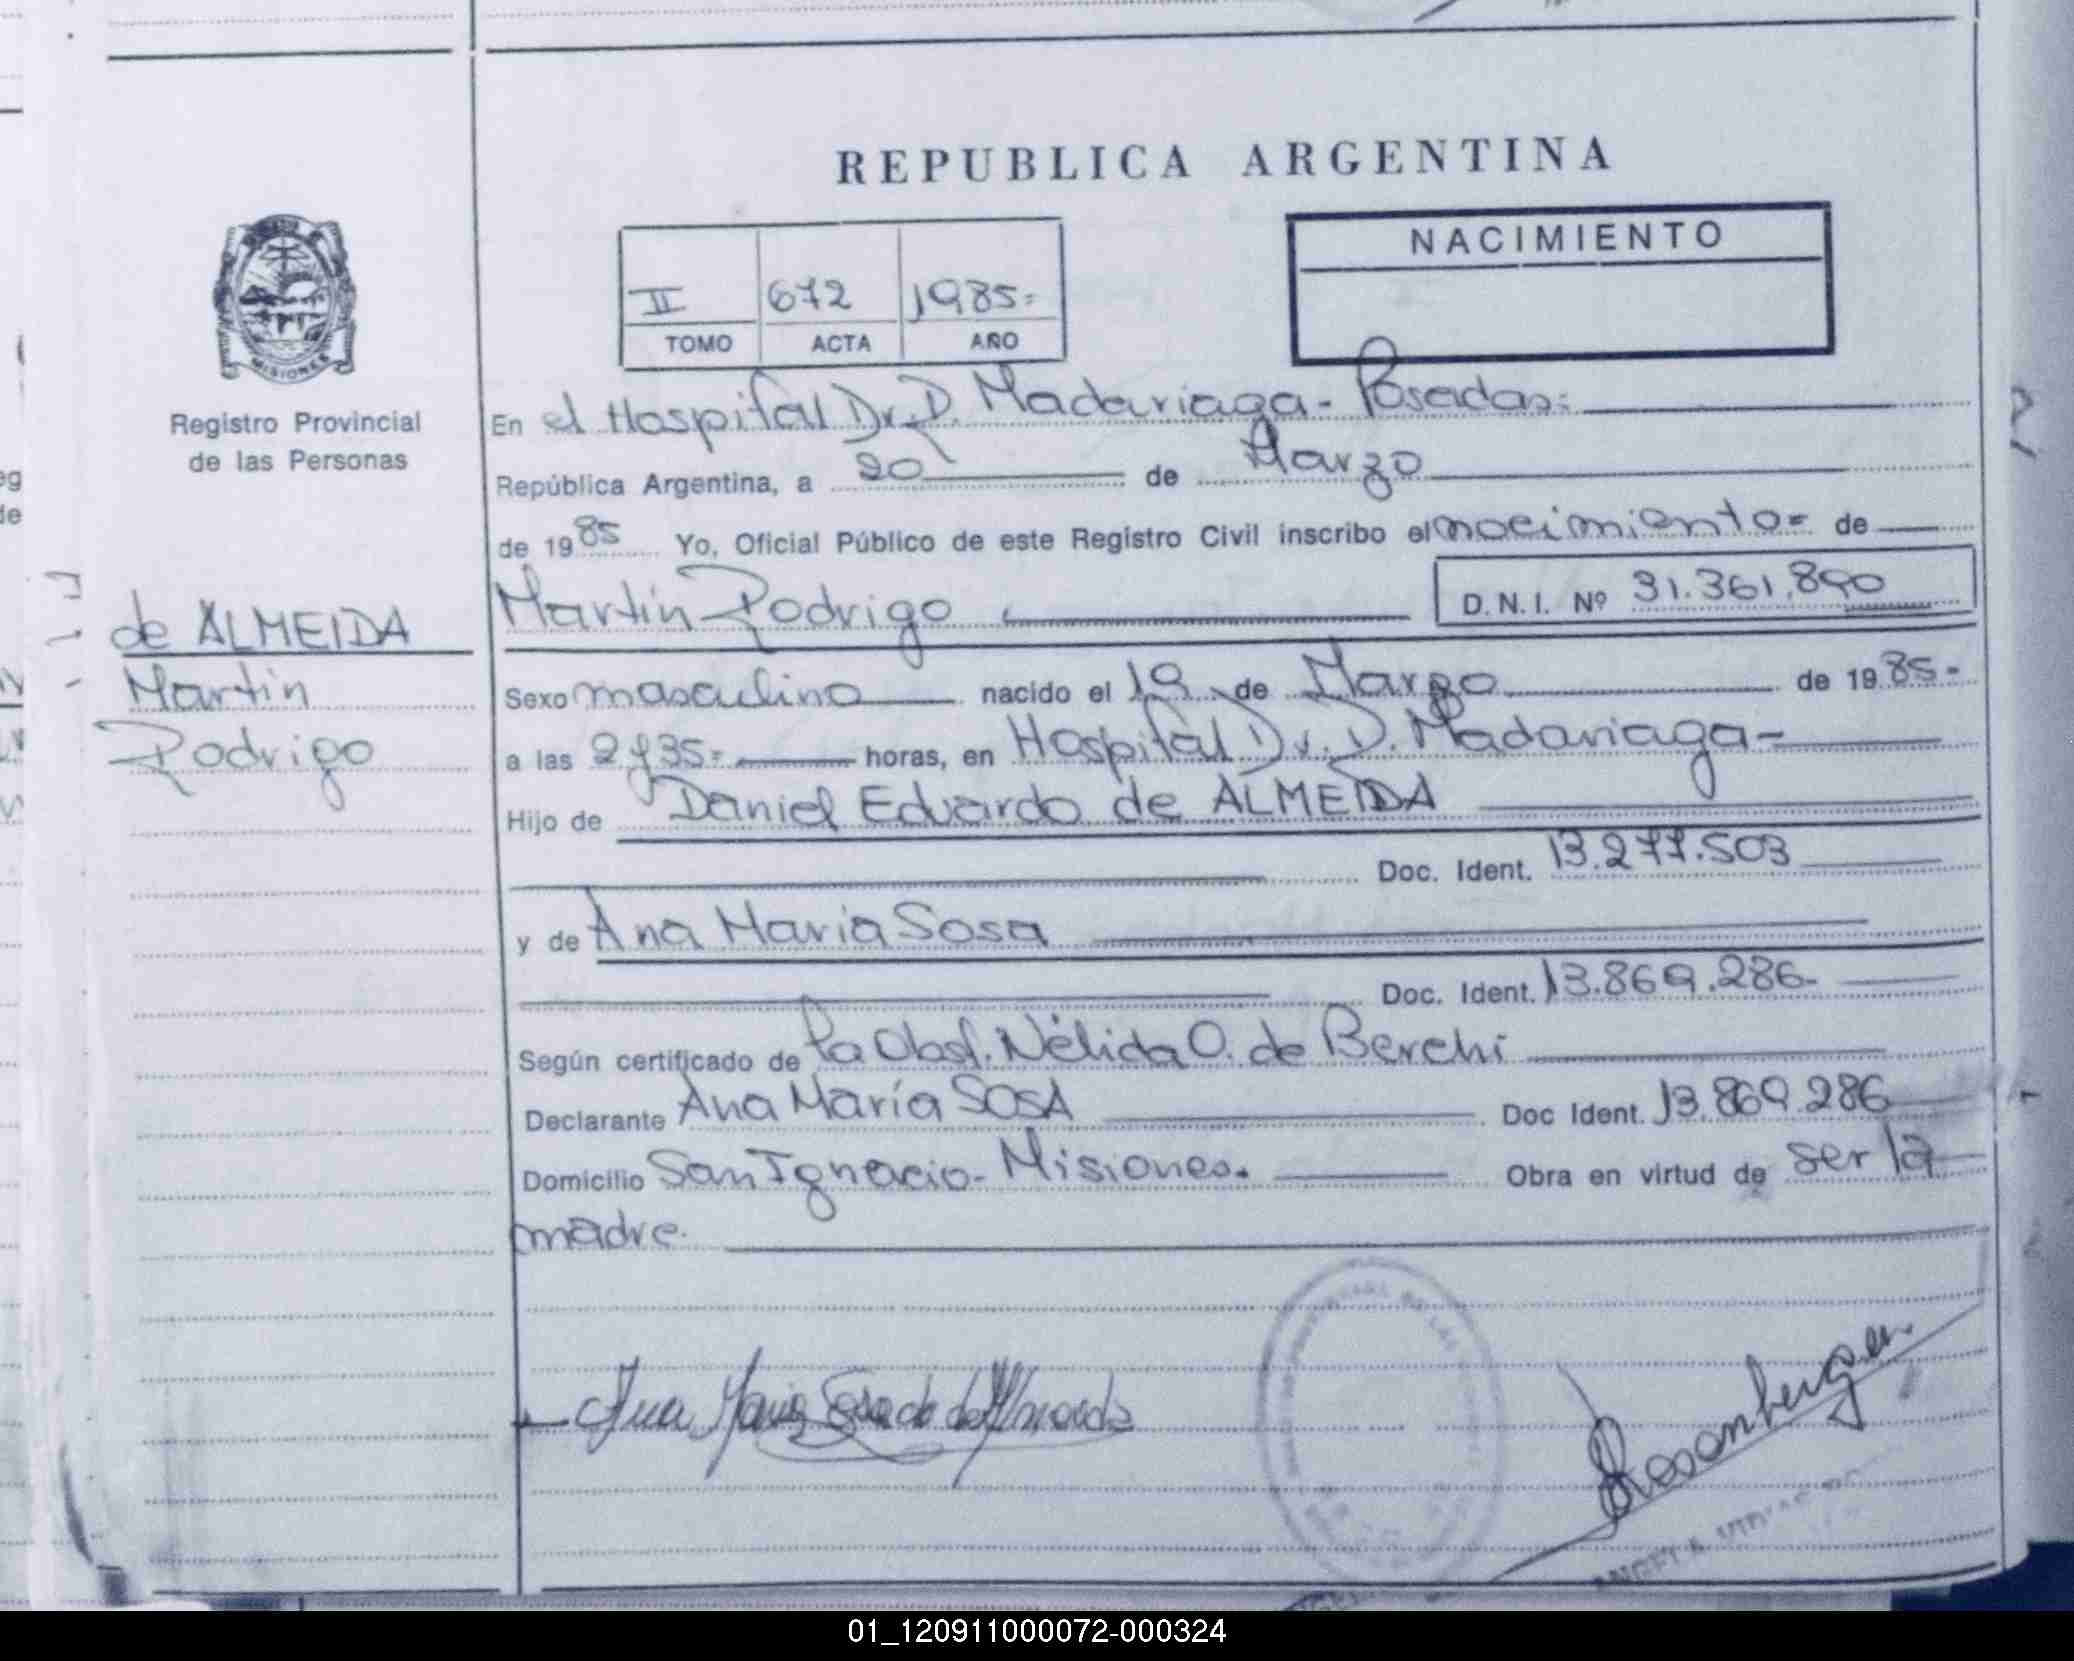 REPUBLICA ARGENTINA
NACIMIENTO
II 672 1985=
TOMO ACTA AÑO
MISIONES
Registro Provincial
de las Personas
de ALMEIDA
Martín
Rodrigo
En el Hospital Dr. D. Madariaga - Posadas=
República Argentina, a 20 de Marzo
de 1985 Yo, Oficial Público de este Registro Civil inscribo el nacimiento= de
Martín Rodrigo D.N.I. Nº 31.361.890
Sexo masculino nacido el 19 de Marzo de 1985=
a las 2 y 35= horas, en Hospital Dr. D. Madariaga-
Hijo de Daniel Eduardo de ALMEIDA
Doc. Ident. 13.277.503
y de Ana María Sosa
Doc. Ident. 13.869.286-
Según certificado de la Obst. Nélida O. de Berchi
Declarante Ana María SOSA Doc Ident. 13.869.286
Domicilio San Ignacio- Misiones. Obra en virtud de ser la
madre.
Ana María Sosa de de Almeida
Rosemberger
01_120911000072-000324